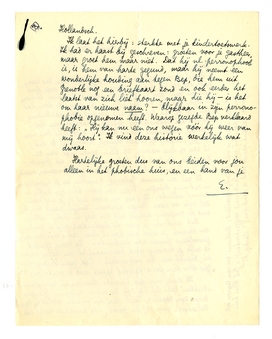 Hollandsch.
Ik laat het hierbij: sterkte met je kindertoekwerk.
Ik had er haast bij geschreven: groeten voor je gastheer,
maar groet hem maar niet. Dat hij nl. personophoob
is, is hem van harte gegund, maar hij neemt een
wonderlijke houding aan tegen Bep, die hem uit
een briefkaart zond en ook eerder het
laatst van zich liet hooren, maar die hij – is het
om haar nieuwe naam? – blijkbaar in zijn persono-
phobie opgenomen heeft. Waarop gezegde Bep verklaard
heeft: "Hij kan nu een ons wegen vóór hij weer van
mij hoort". Ik vind deze historie werkelijk wat
dwaas.
Hartelijke groeten dus van ons beiden voor jou
alleen in het phobische huis, en een hand van je
E.